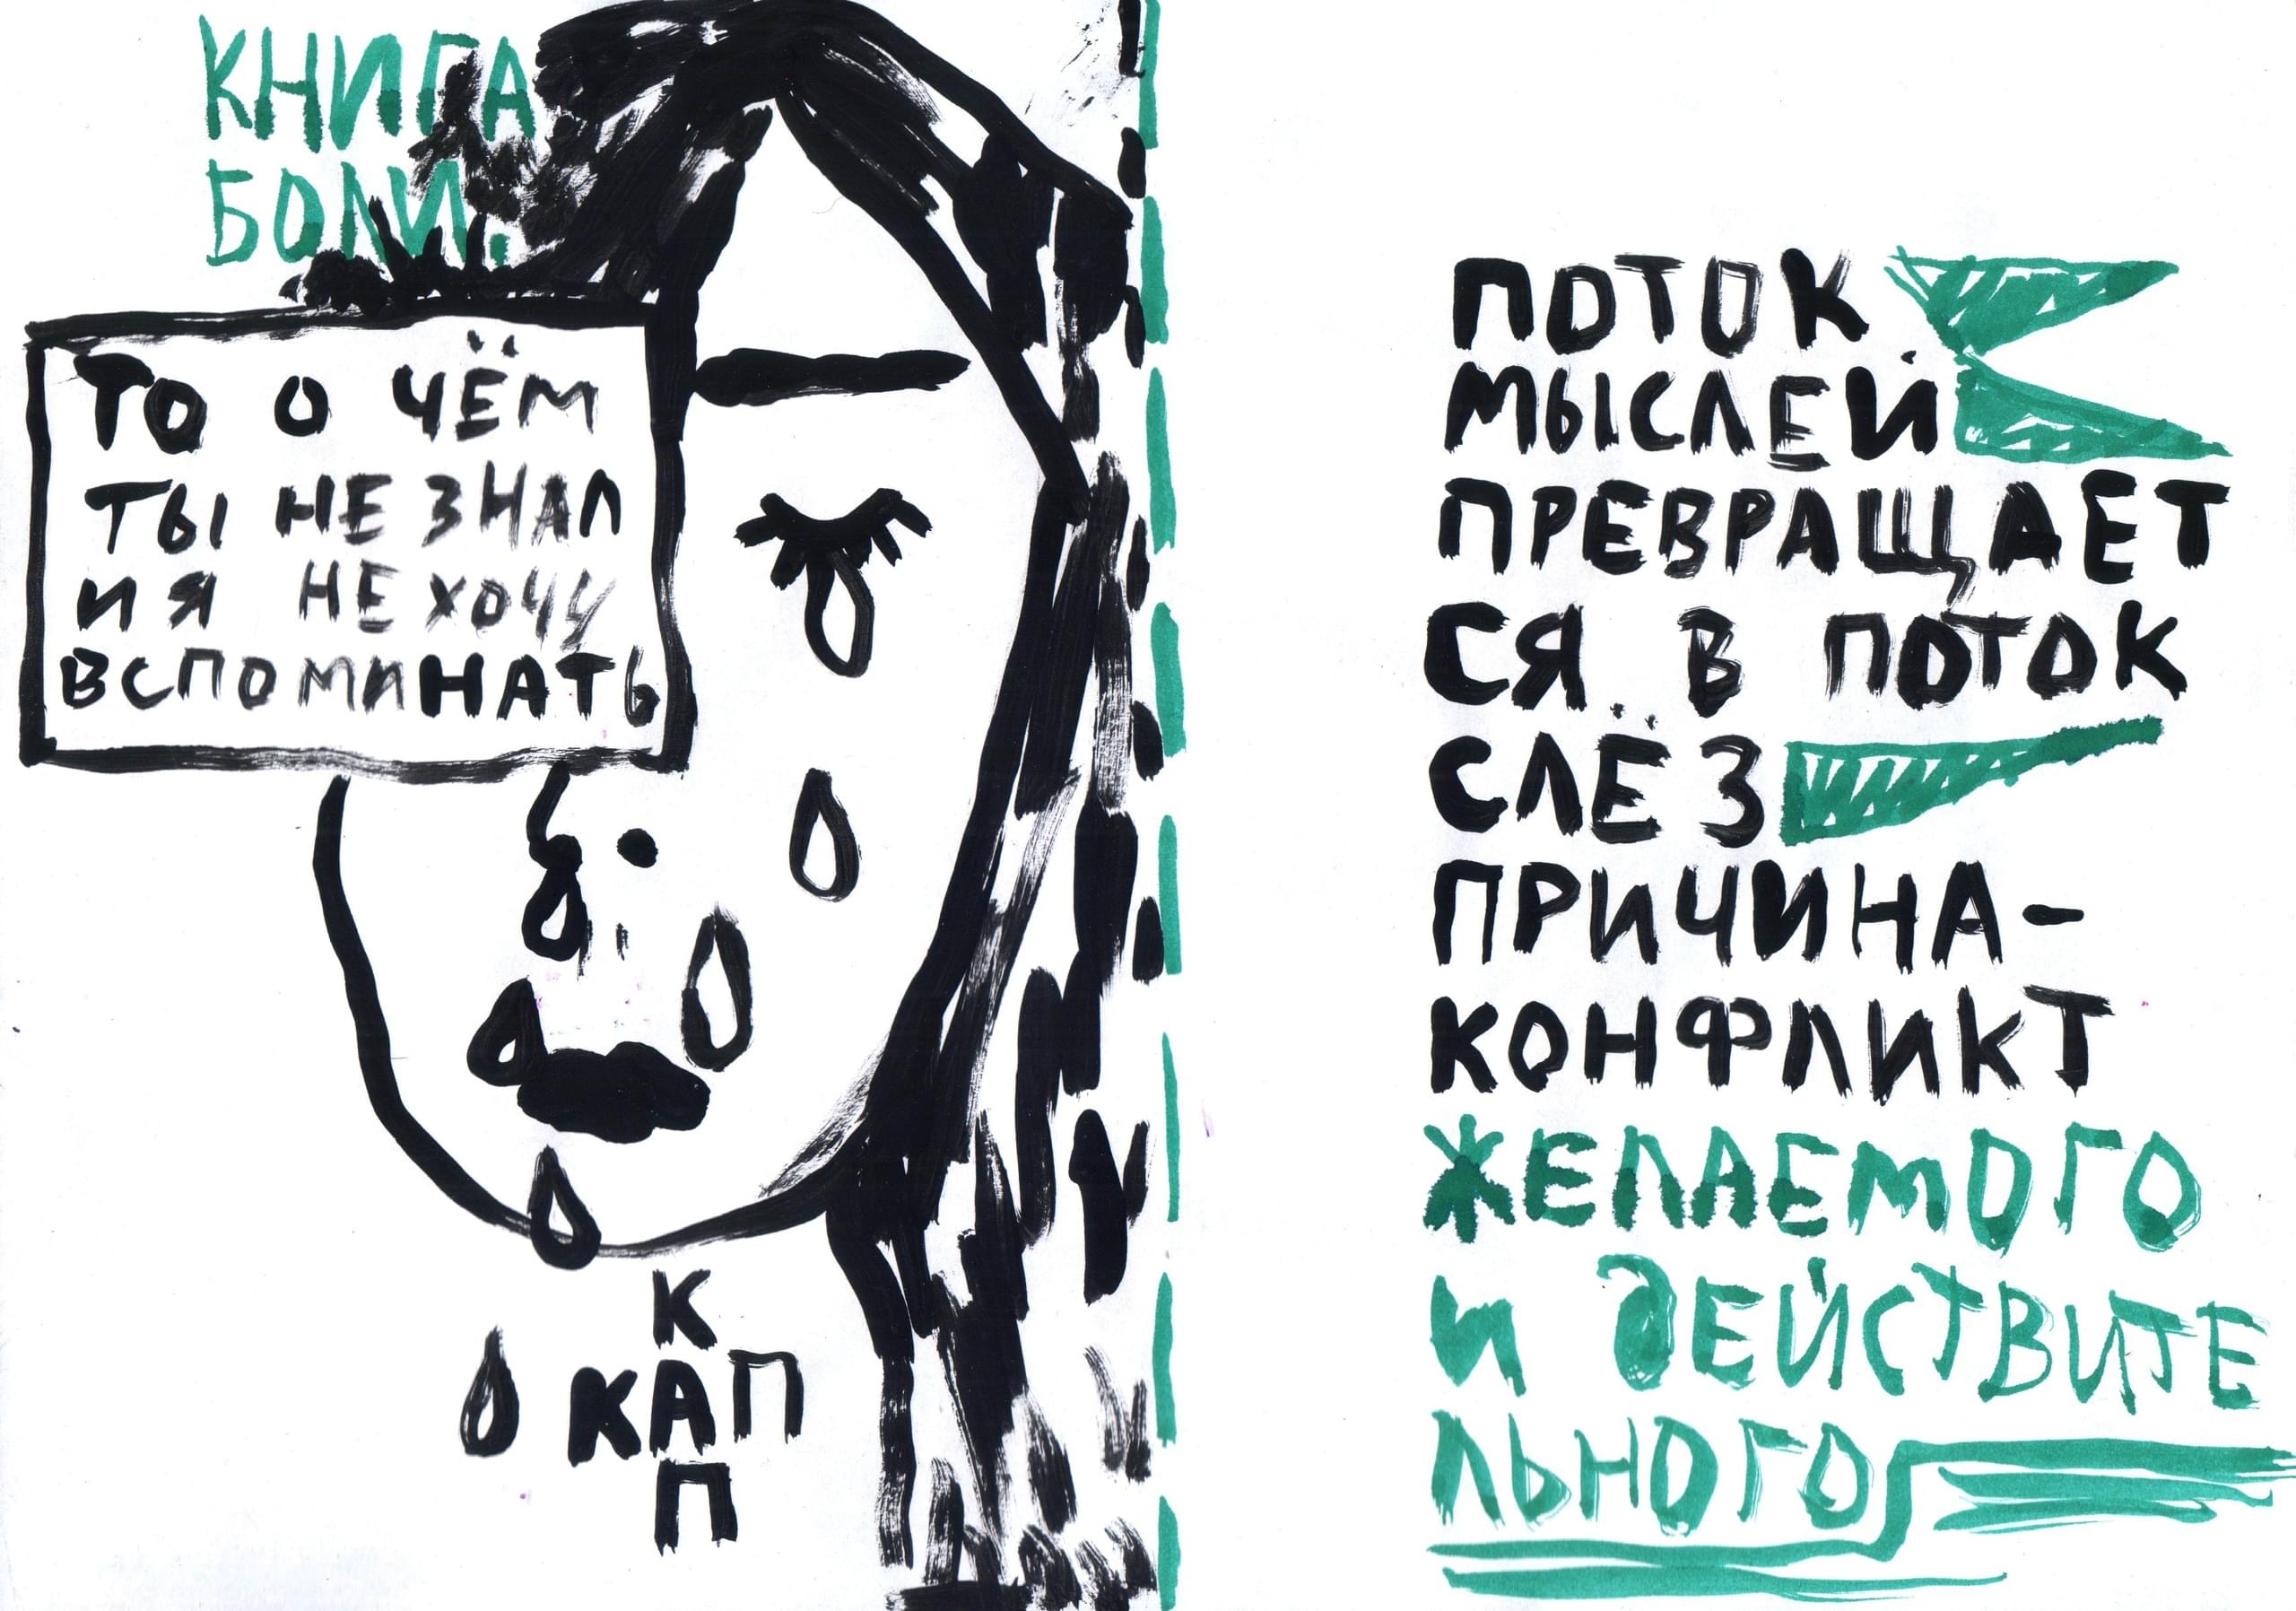 КНИГА
БОЛИ.
ТО О ЧЁМ
ТЫ НЕ ЗНАЛ
И Я НЕ ХОЧУ
ВСПОМИНАТЬ
К
КАП
П
ПОТОК
МЫСЛЕЙ
ПРЕВРАЩАЕТ
СЯ В ПОТОК
СЛЁЗ
ПРИЧИНА-
КОНФЛИКТ
ЖЕЛАЕМОГО
И ДЕЙСТВИТЕ
ЛЬНОГО